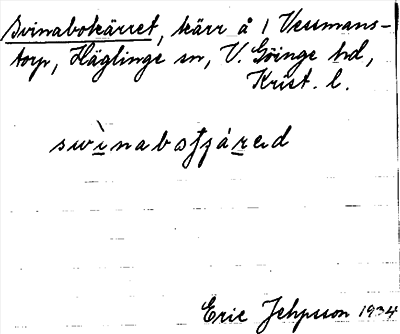 Svinabokärret, kärr å 1 Vessmans-
torp, Häglinge sn, V. Göinge hd,
Krist. l.
swìnabotjárəd
Eric Jehpsson 1934